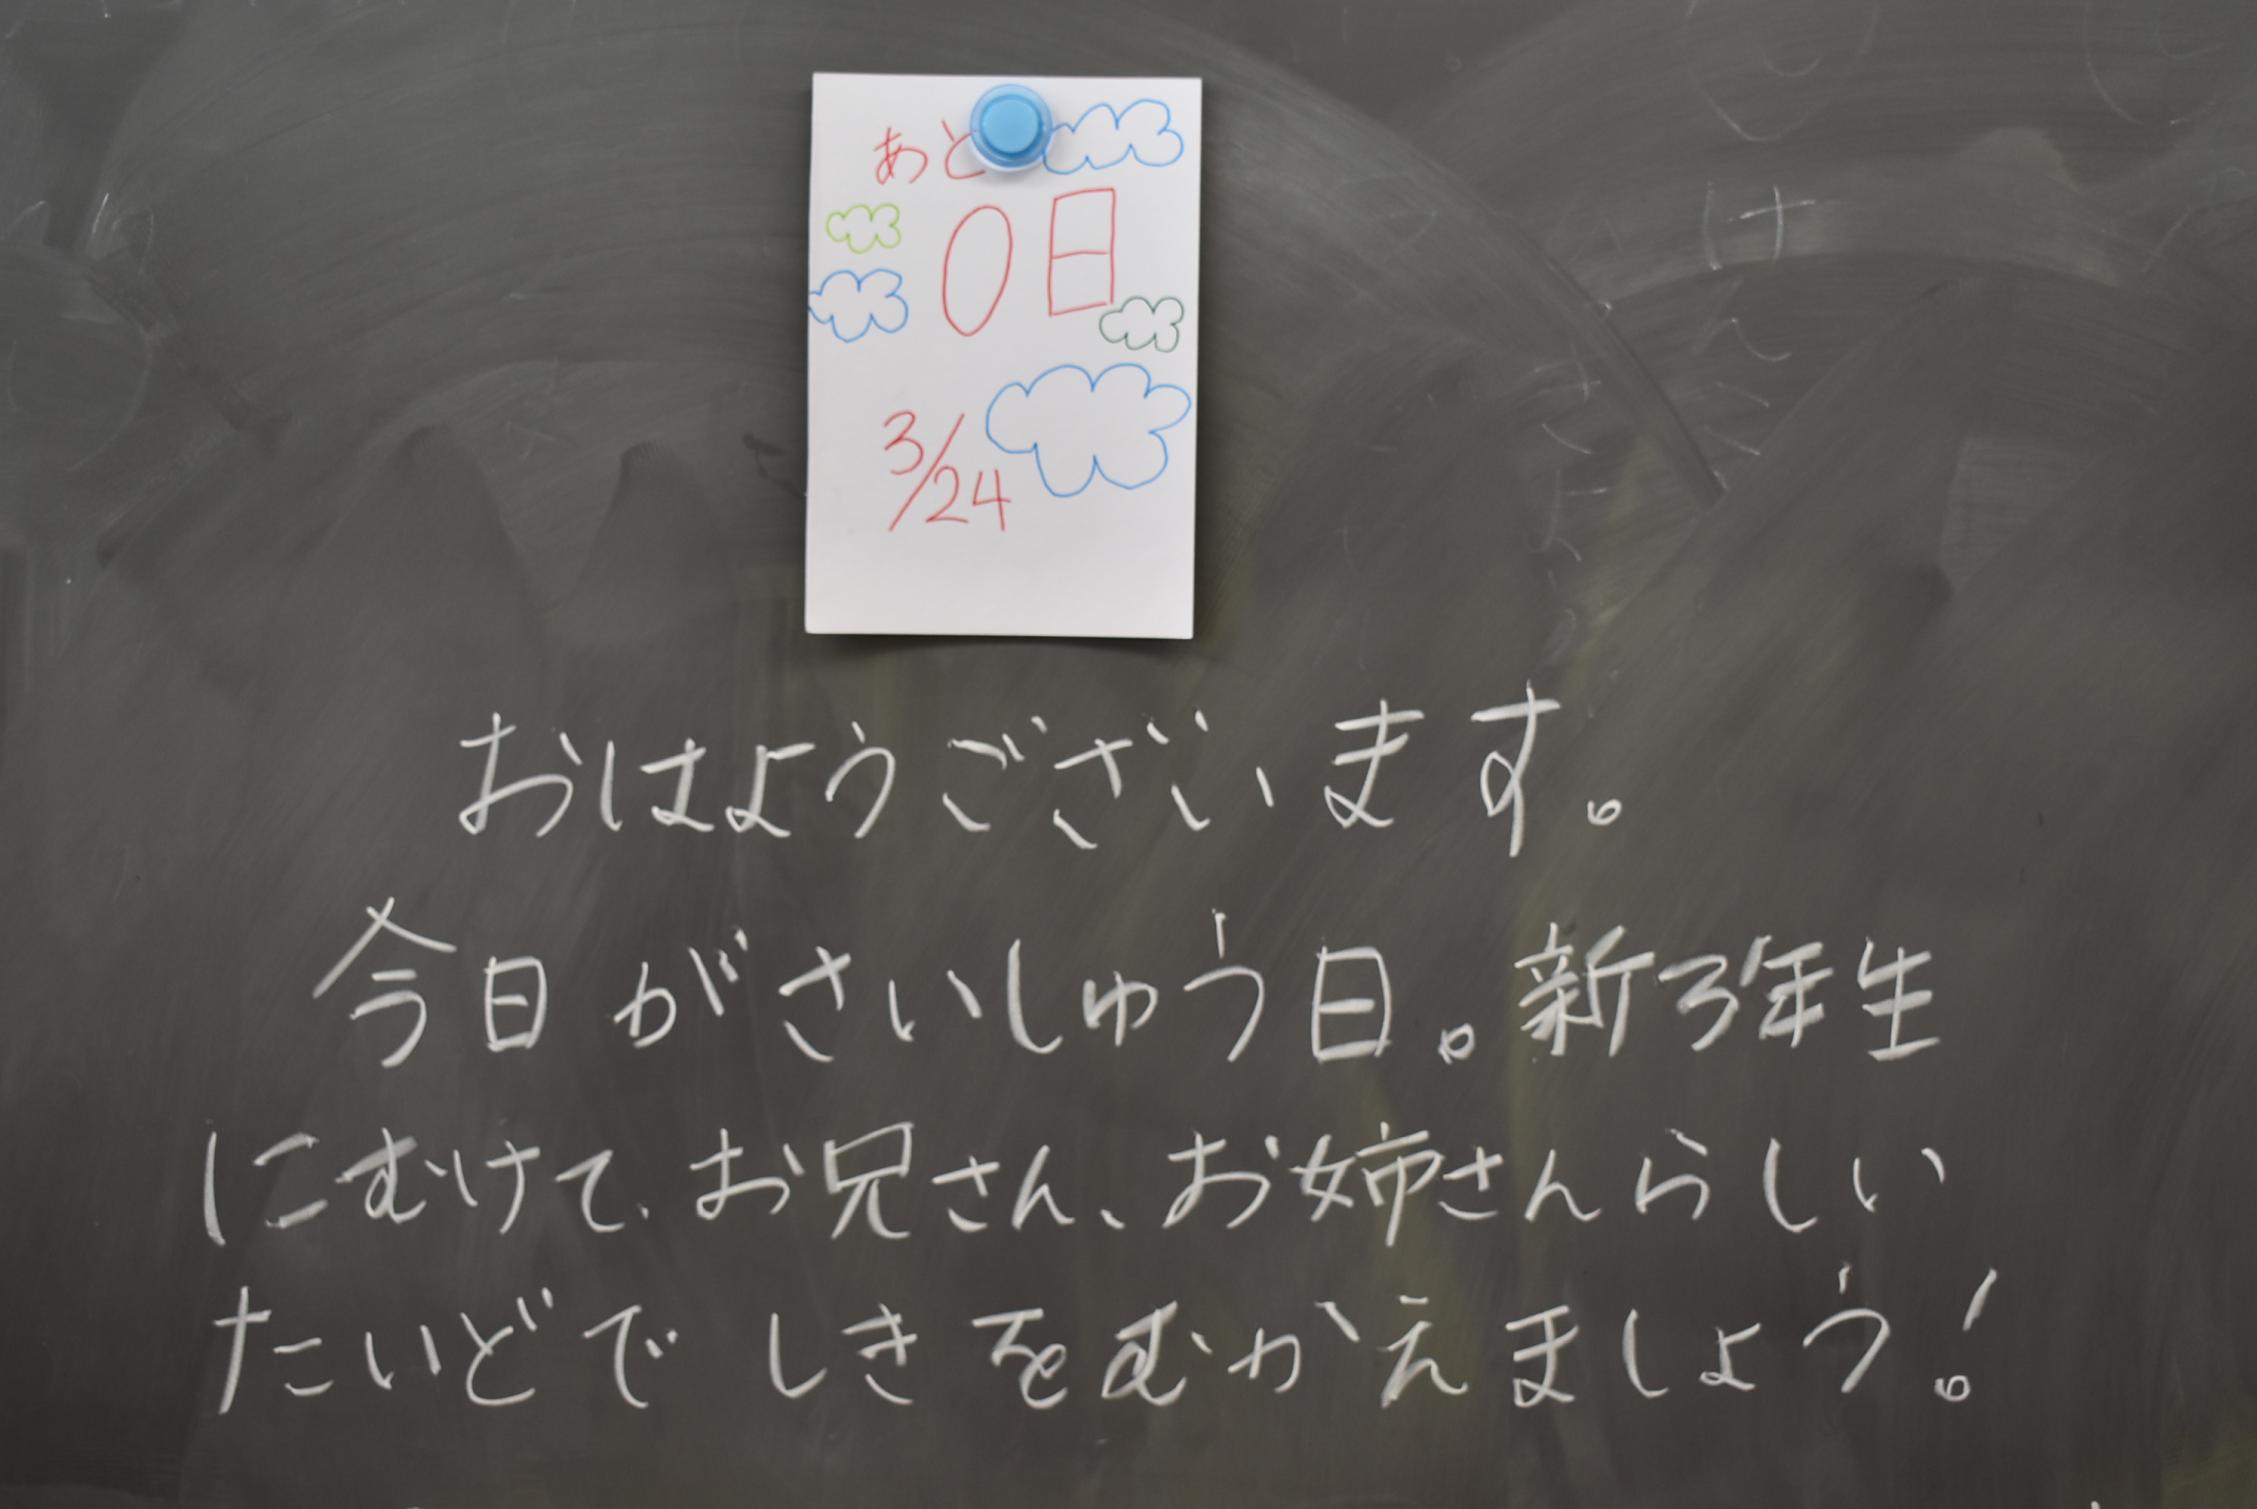 あと
0日
3/24
おはようございます。
今日がさいしゅう日。新3年生
にむけて、お兄さん、お姉さんらしい
たいどでしきをむかえましょう!